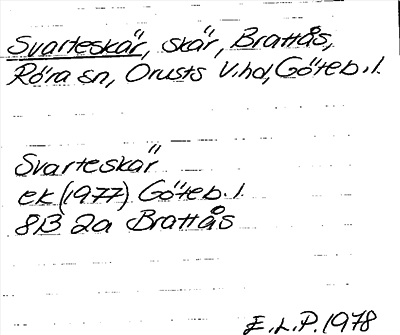 Svarteskär, skär, Brattås,
Röra sn, Orusts V.hd, Göteb.l.
Svarteskär
ek (1977) Göteb.l.
8B 2a Brattås
E.L.P. 1978